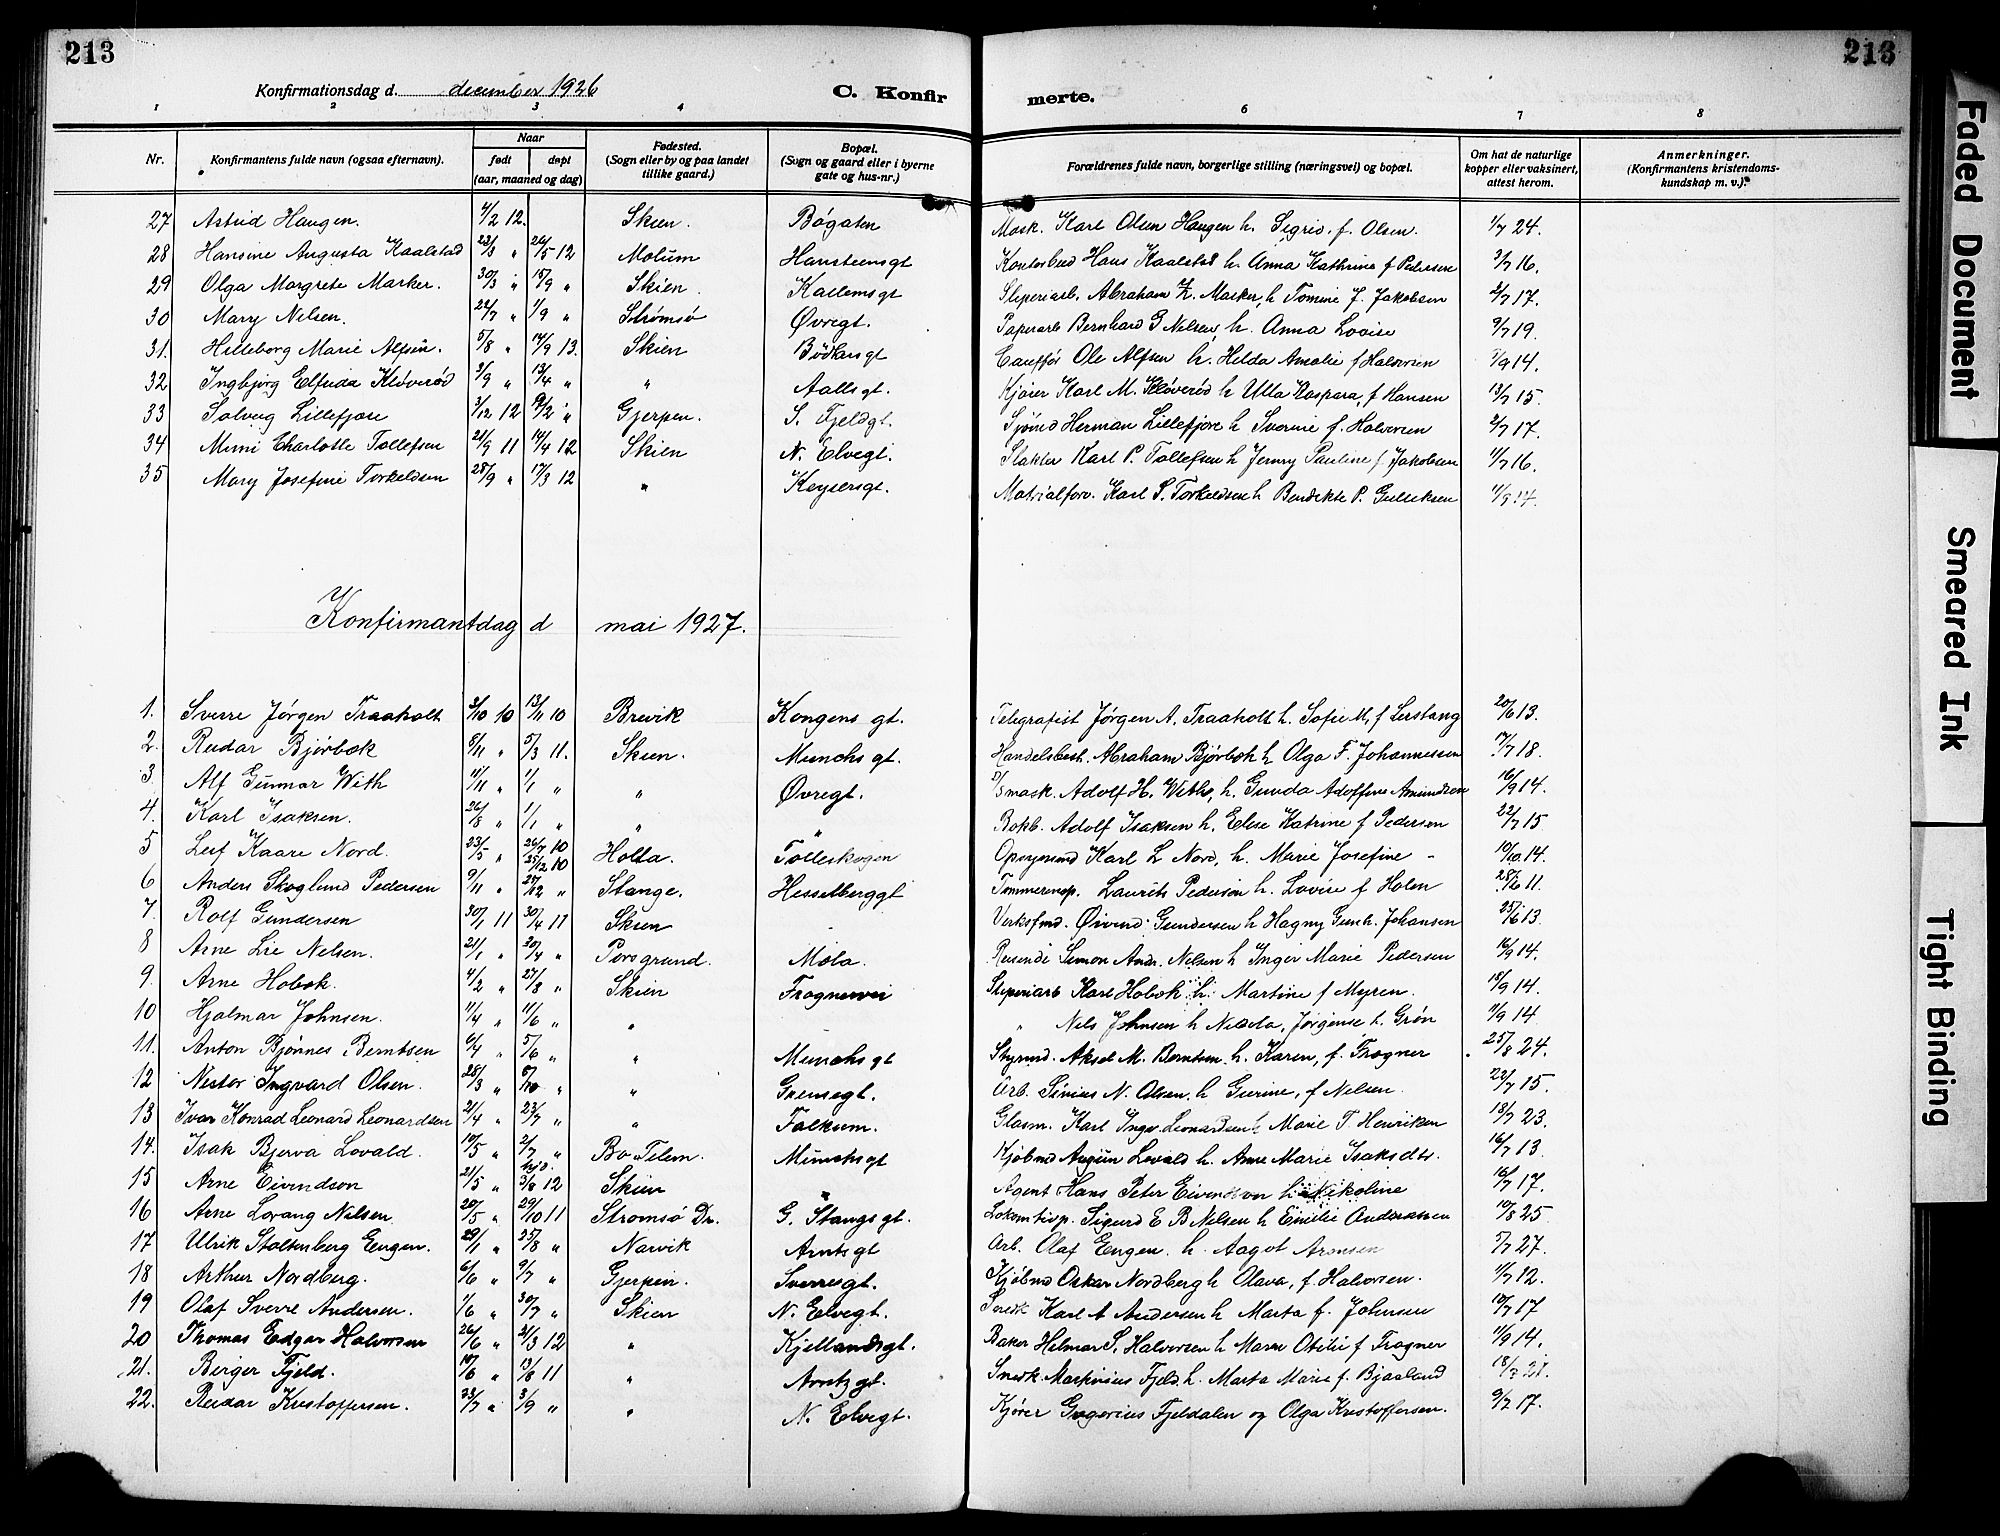 213
213
Konfirmationsdag d. december 1926
C. Konfir
merte.
1 2 3 4 6 7 8
Nr.
Konfirmantens fulde navn (ogsaa efternavn).
Naar
født døpt
(aar, maaned og dag)
Fødested.
(Sogn eller by og paa landet
tillike gaard.)
Bopæl.
(Sogn og gaard eller i byerne
gate og hus-nr.)
Forældrenes fulde navn, borgerlige stilling (næringsvei) og bopæl.
Om hat de naturlige
kopper eller vaksinert,
attest herom.
Anmerkninger.
(Konfirmantens kristendoms-
kundskap m. v.)
27 Astrid Haugen. 4/2 12. Skien. Bøgaten Mask. Karl Olsen Haugen h. Sigrid. f. Olsen. 1/7 24.
28 Hansine Augusta Kaalstad 23/3 " 26/5 12 Molum Hansteensgt Kontorbud Hans Kaalstad h. Anna Kathrine f Pedersen 3/7 16.
29 Olga Margrete Marker. 30/3 " 15/9 " Skien. Kallemsgt Sliperiarb. Abraham Z. Marker, h Tomine J. Jakobsen 2/7 17.
30 Marry Nelsen. 22/7 " 1/9 " Strømsø Øvregt. Papirarb Bernhard G Nelsen h. Anna Lovise 9/7 19.
31. Hilleborg Marie Alfsen. 5/8 " 14/9 13. Skien Bødkergt Ole Alfsen h. Helda Amalie f Halvorsen 7/9 14.
32 Ingbjørg Elfrida Kløverød 3/9 " 13/4 " " Aallsgt. Kjører Karl M. Kløverød h Ulla Kaspara, f Hansen 13/7 15.
33 Solveig Lillefjære 3/12 12 9/2 " Gjerpen. S. Fjeldgt. Sjømd Herman Lillefjære h Sverine f. Halvorsen 3/7 17.
34 Mimi Charlotte Tollefsen 21/9 11 14/4 12 Skien N. Elvegt. Slakter Karl P. Tollefsen h Jenny Pauline f Jakobsen 11/7 16.
35 Mary Josefine Torkeldsen 28/9 " 17/3 12 " Keysersgt. Matrialforv. Karl S. Torkeldsen h Bendikte P. Gulliksen 11/9 17.
Konfirmantdag d mai 1927.
1. Sverre Jørgen Traaholt 3/10 10 13/11 10 Brevik Kongens gt. Telegrafist Jørgen A. Traaholt h. Sofie M, f Lerstang 20/6 13.
2. Reidar Bjørbæk 8/11 " 5/3 11. Skien. Munchs gt. Handelsbest. Abraham Bjørbæk h Olga F. Johannessen 17/7 18.
3 Alf Gunnar With 11/11 " 1/1 " " Øvregt. D/S mask. Adolf H. With, h. Gunda Adolfine Amundsen 16/9 14.
4. Karl Isaksen. 26/8 " 1/1 " " " Bokb. Adolf Isaksen h. Elise Katrine f Pedersen 22/7 15
5 Leif Kaare Nord. 23/5 " 26/7 10 Holla. Tolleskogen Karl L Nord, h. Marie Josefine - 10/10 14.
6 Anders Skoglund Pedersen 9/11 " 25/12 10 27/12 " Stange. Hesselberggt Laurits Pedersen h. Lovise f Holen 28/6 11.
7. Rolf Gundersen 30/7 11 30/4 11 Skien - Verksfmd. Øivind Gundersen h Hagny Gunh. Johansen 25/6 13.
8 Arne Lie Nelsen. 21/1 " 30/4 " Porsgrund. Mæla. Reisende Simon Andr. Nelsen h Inger Marie Pedersen 16/9 14.
9. Arne Hobæk. 4/2 " 27/3 " Skien Frognervei Sliperiarb Karl Hobæk h. Martine f Myren. 18/9 14.
10 Hjalmar Johnsen. 11/4 " 11/6 " " - " Nils Johnsen h Nilda, Jørgense h. Grøn 11/9 14
11. Anton Bjønnes Berntsen 6/4 " 5/6 " " Munchs gt Styrmd. Aksel M. Berntsen. h. Karen, f. Frogner 25/8 24.
12 Nestor Ingvard Olsen. 28/3 " 8/10 " " Grensegt. Arb. Sinius N. Olsen. h Gurine, f Nelsen. 22/7 15.
13 Ivar Konrad Leonard Leonardsen 21/4 " 23/7 " " Falkum. Glasm. Karl Ingv. Leonardsen h Marie T. Henriksen 18/7 23.
14. Isak Bjerva Lovald. 10/5 " 2/7 " Bø Telem. Munchsgt Kjøbmd August Lovald h. Anne Marie Isaksdtr. 16/7 13.
15 Arne Eivendson 21/5 " hjd. 3/8 12 Skien " Agent Hans Peter Eivendson h. Nikoline 16/7 17.
16 Arne Lorang Nelsen 20/5 " 29/10 11 Strømsø Dr. G. Stangs gt. Lokomtivp. Sigurd E B Nelsen h Emilie Anderssen 10/8 25.
17 Ulrik Stoltenberg Engen. 29/1 " 25/8 " Narvik Arntsgt Arb. Olaf Engen. h. Aagot Aronsen 7/7 27.
18 Arthur Nordberg. 6/6 " 9/7 " Gjerpen. Sverresgt. Kjøbmd Oskar Nordberg h Olava, f. Halvorsen. 1/7 12.
19 Olaf Sverre Andersen. 1/6 " 30/7 " Skien N. Elvegt. Snedk Karl A Andersen h Marta f. Johnsen 10/7 17
20 Thomas Edgar Halvorsen 26/6 " 31/3 12 " Kjellandsgt. Baker Helmar S. Halvorsen h Maren Otilie f Frogner 11/9 14.
21. Berger Fjeld. 10/6 " 13/8 11 " Arntzgt. Snedk. Martinius Fjeld. h. Marta Marie f. Bjaaland 18/7 21.
22. Reidar Kristoffersen. 23/7 " 3/9 " " N. Elvegt. Kjører Gregorius Fjeldalen og Olga Kristoffersen. 9/7 17.
Faded Document
Smeared Ink
Tight Binding